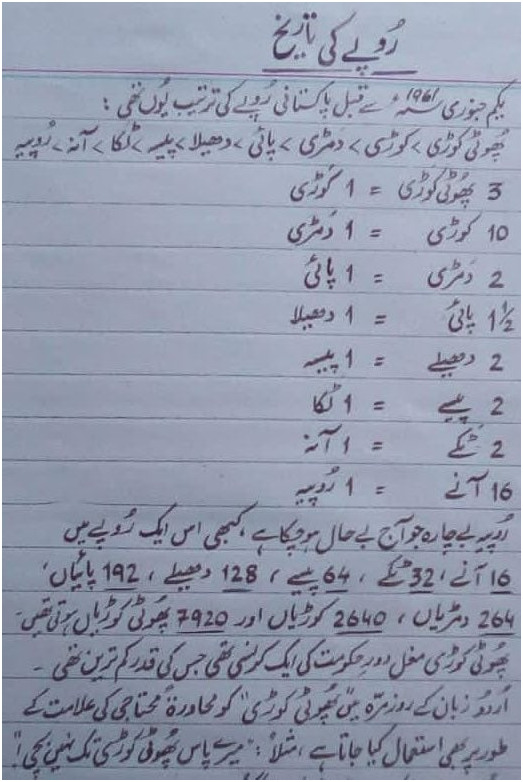 رُوپے کی تاریخ
یکم جنوری سنہ 1961ء سے قبل پاکستانی رُوپے کی ترتیب یُوں تھی :
پُھوٹی کوڑی > کوڑی > دَمڑی > پائی > دھیلا > پیسہ > ٹکا > آنہ > رُوپیہ
3 پُھوٹی کوڑی = 1 کوڑی
10 کوڑی = 1 دَمڑی
2 دَمڑی = 1 پائی
1½ پائی = 1 دھیلا
2 دھیلے = 1 پیسہ
2 پیسے = 1 ٹکا
2 ٹکے = 1 آنہ
16 آنے = 1 رُوپیہ
رُوپیہ بے چارہ جو آج بے حال ہو چکا ہے ، کبھی اس ایک رُوپے میں
16 آنے ، 32 ٹکے ، 64 پیسے ، 128 دھیلے ، 192 پائیاں ،
264 دمڑیاں ، 2640 کوڑیاں اور 7920 پھُوٹی کوڑیاں ہوتی تھیں۔
پھُوٹی کوڑی مغل دورِ حکومت کی ایک کرنسی تھی جس کی قدر کم ترین تھی ۔
اُردُو زبان کے روزمرّہ میں "پھُوٹی کوڑی" کو محاورۃً محتاجی کی علامت کے
طور پر بھی استعمال کیا جاتا ہے ، مثلاً : "میرے پاس پھُوٹی کوڑی تک نہیں بچی !"